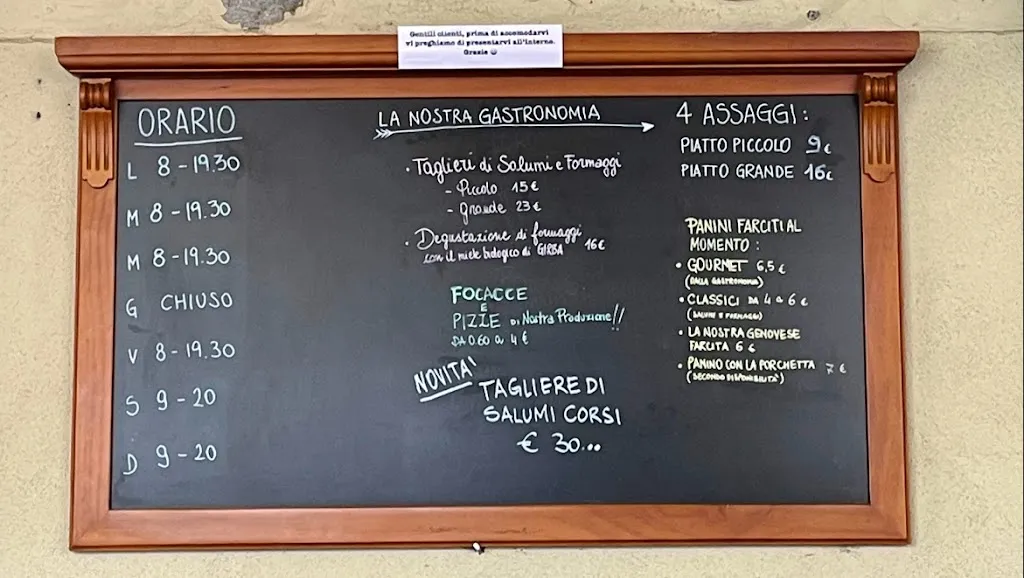 Gentili clienti, prima di accomodarvi
vi preghiamo di presentarvi all'interno.
Grazie ☺
ORARIO
L 8-19.30
M 8-19.30
M 8-19.30
G CHIUSO
V 8-19.30
S 9-20
D 9-20
LA NOSTRA GASTRONOMIA
• Taglieri di Salumi e Formaggi
- Piccolo 15€
- Grande 23€
• Degustazione di formaggi
con il miele biologico di GIRBA 16€
FOCACCE
E
PIZZE DI Nostra Produzione!!
DA 0.60 a 4€
NOVITA'
TAGLIERE DI
SALUMI CORSI
€ 30...
4 ASSAGGI:
PIATTO PICCOLO 9€
PIATTO GRANDE 16€
PANINI FARCITI AL
MOMENTO:
• GOURMET 6,5€
(DALLA GASTRONOMIA)
• CLASSICI DA 4 a 6€
(SALUMI E FORMAGGI)
• LA NOSTRA GENOVESE
FARCITA 6€
• PANINO CON LA PORCHETTA 7€
(SECONDO DISPONIBILITA')